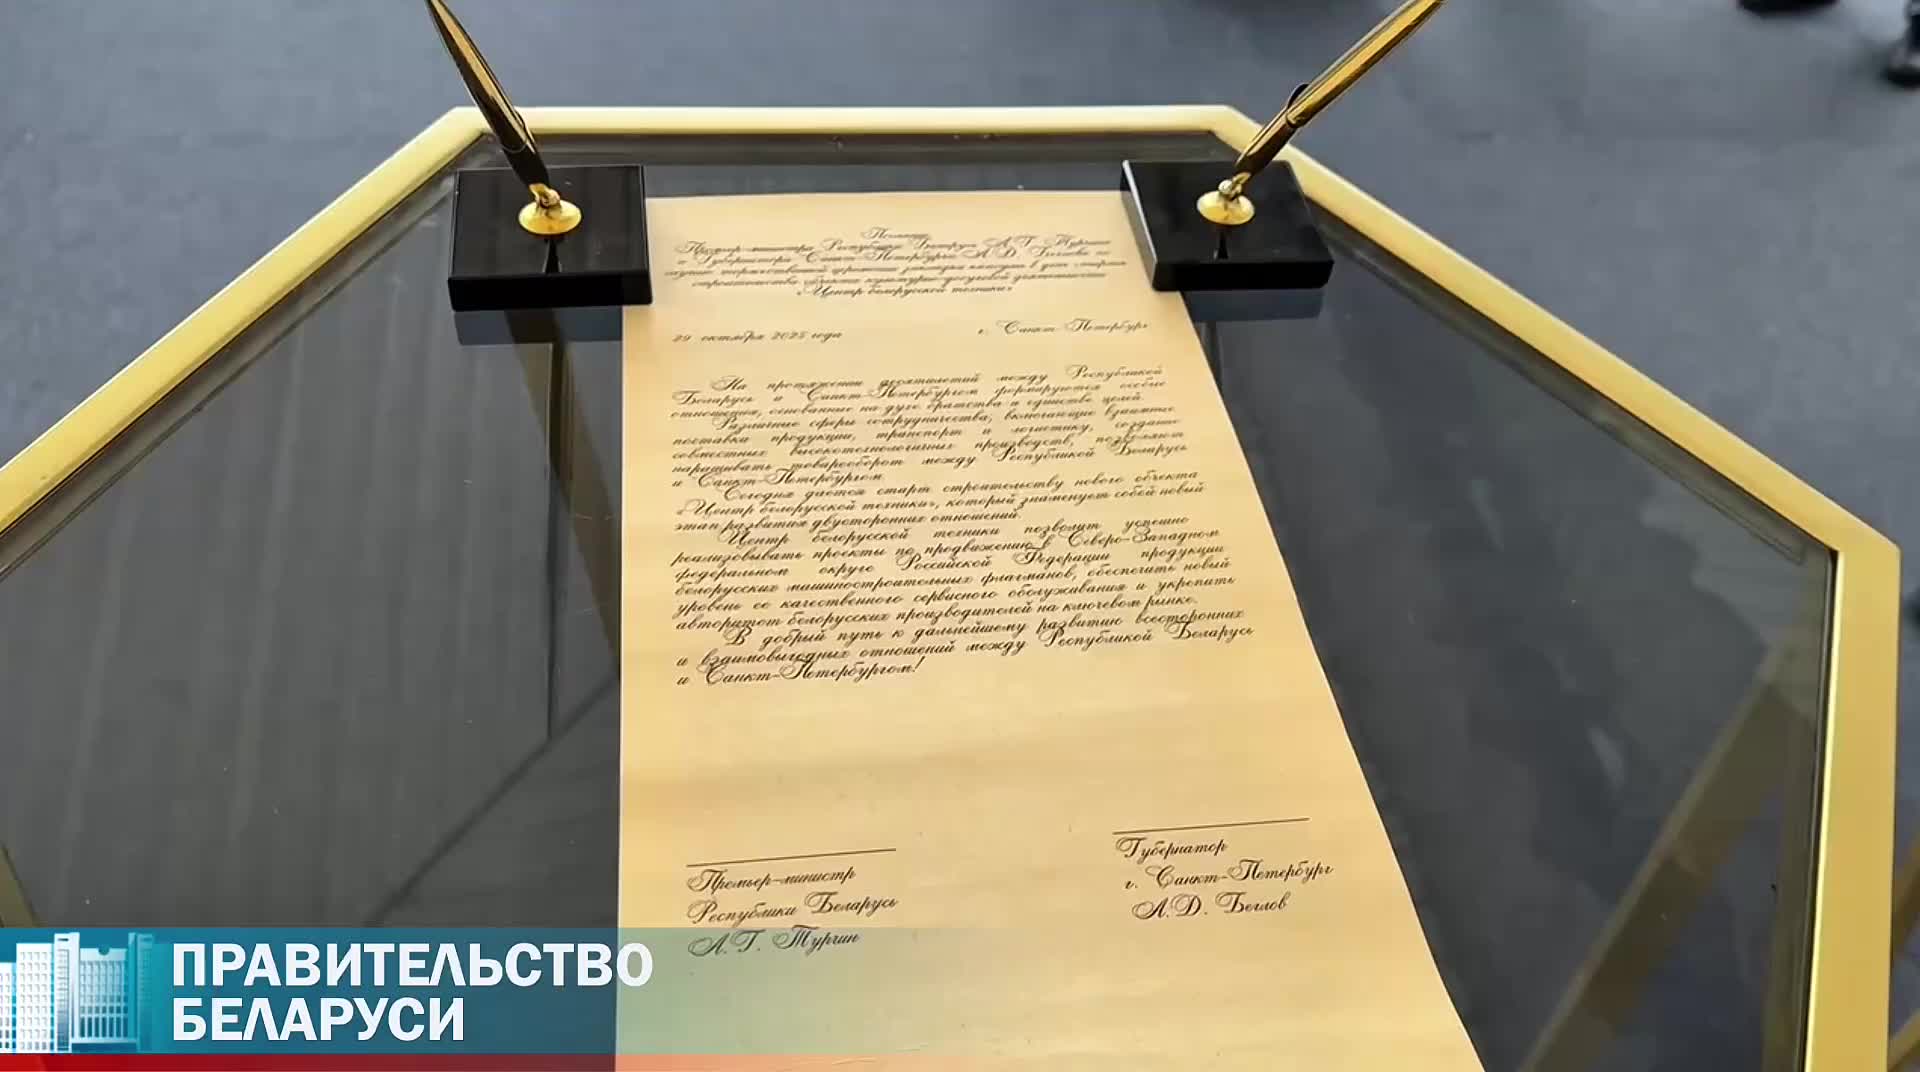 Премьер-министра Республики Беларусь А.Г. Турчина
и Губернатора Санкт-Петербурга А.Д. Беглова по
случаю торжественной церемонии закладки капсулы в день старта
строительства объекта культурно-досуговой деятельности
«Центр белорусской техники»
29 октября 2025 года
г. Санкт-Петербург
На протяжении десятилетий между Республикой
Беларусь и Санкт-Петербургом формируются особые
отношения, основанные на духе братства и единстве целей.
Различные сферы сотрудничества, включающие взаимные
поставки продукции, транспорт и логистику, создание
совместных высокотехнологичных производств, позволяют
наращивать товарооборот между Республикой Беларусь
и Санкт-Петербургом.
Сегодня дается старт строительству нового объекта
«Центр белорусской техники», который знаменует собой новый
этап развития двусторонних отношений.
Центр белорусской техники позволит успешно
реализовывать проекты по продвижению в Северо-Западном
федеральном округе Российской Федерации продукции
белорусских машиностроительных флагманов, обеспечить новый
уровень ее качественного сервисного обслуживания и укрепить
авторитет белорусских производителей на ключевом рынке.
В добрый путь к дальнейшему развитию всесторонних
и взаимовыгодных отношений между Республикой Беларусь
и Санкт-Петербургом!
Премьер-министр
Республики Беларусь
А.Г. Турчин
Губернатор
г. Санкт-Петербург
А.Д. Беглов
ПРАВИТЕЛЬСТВО
БЕЛАРУСИ